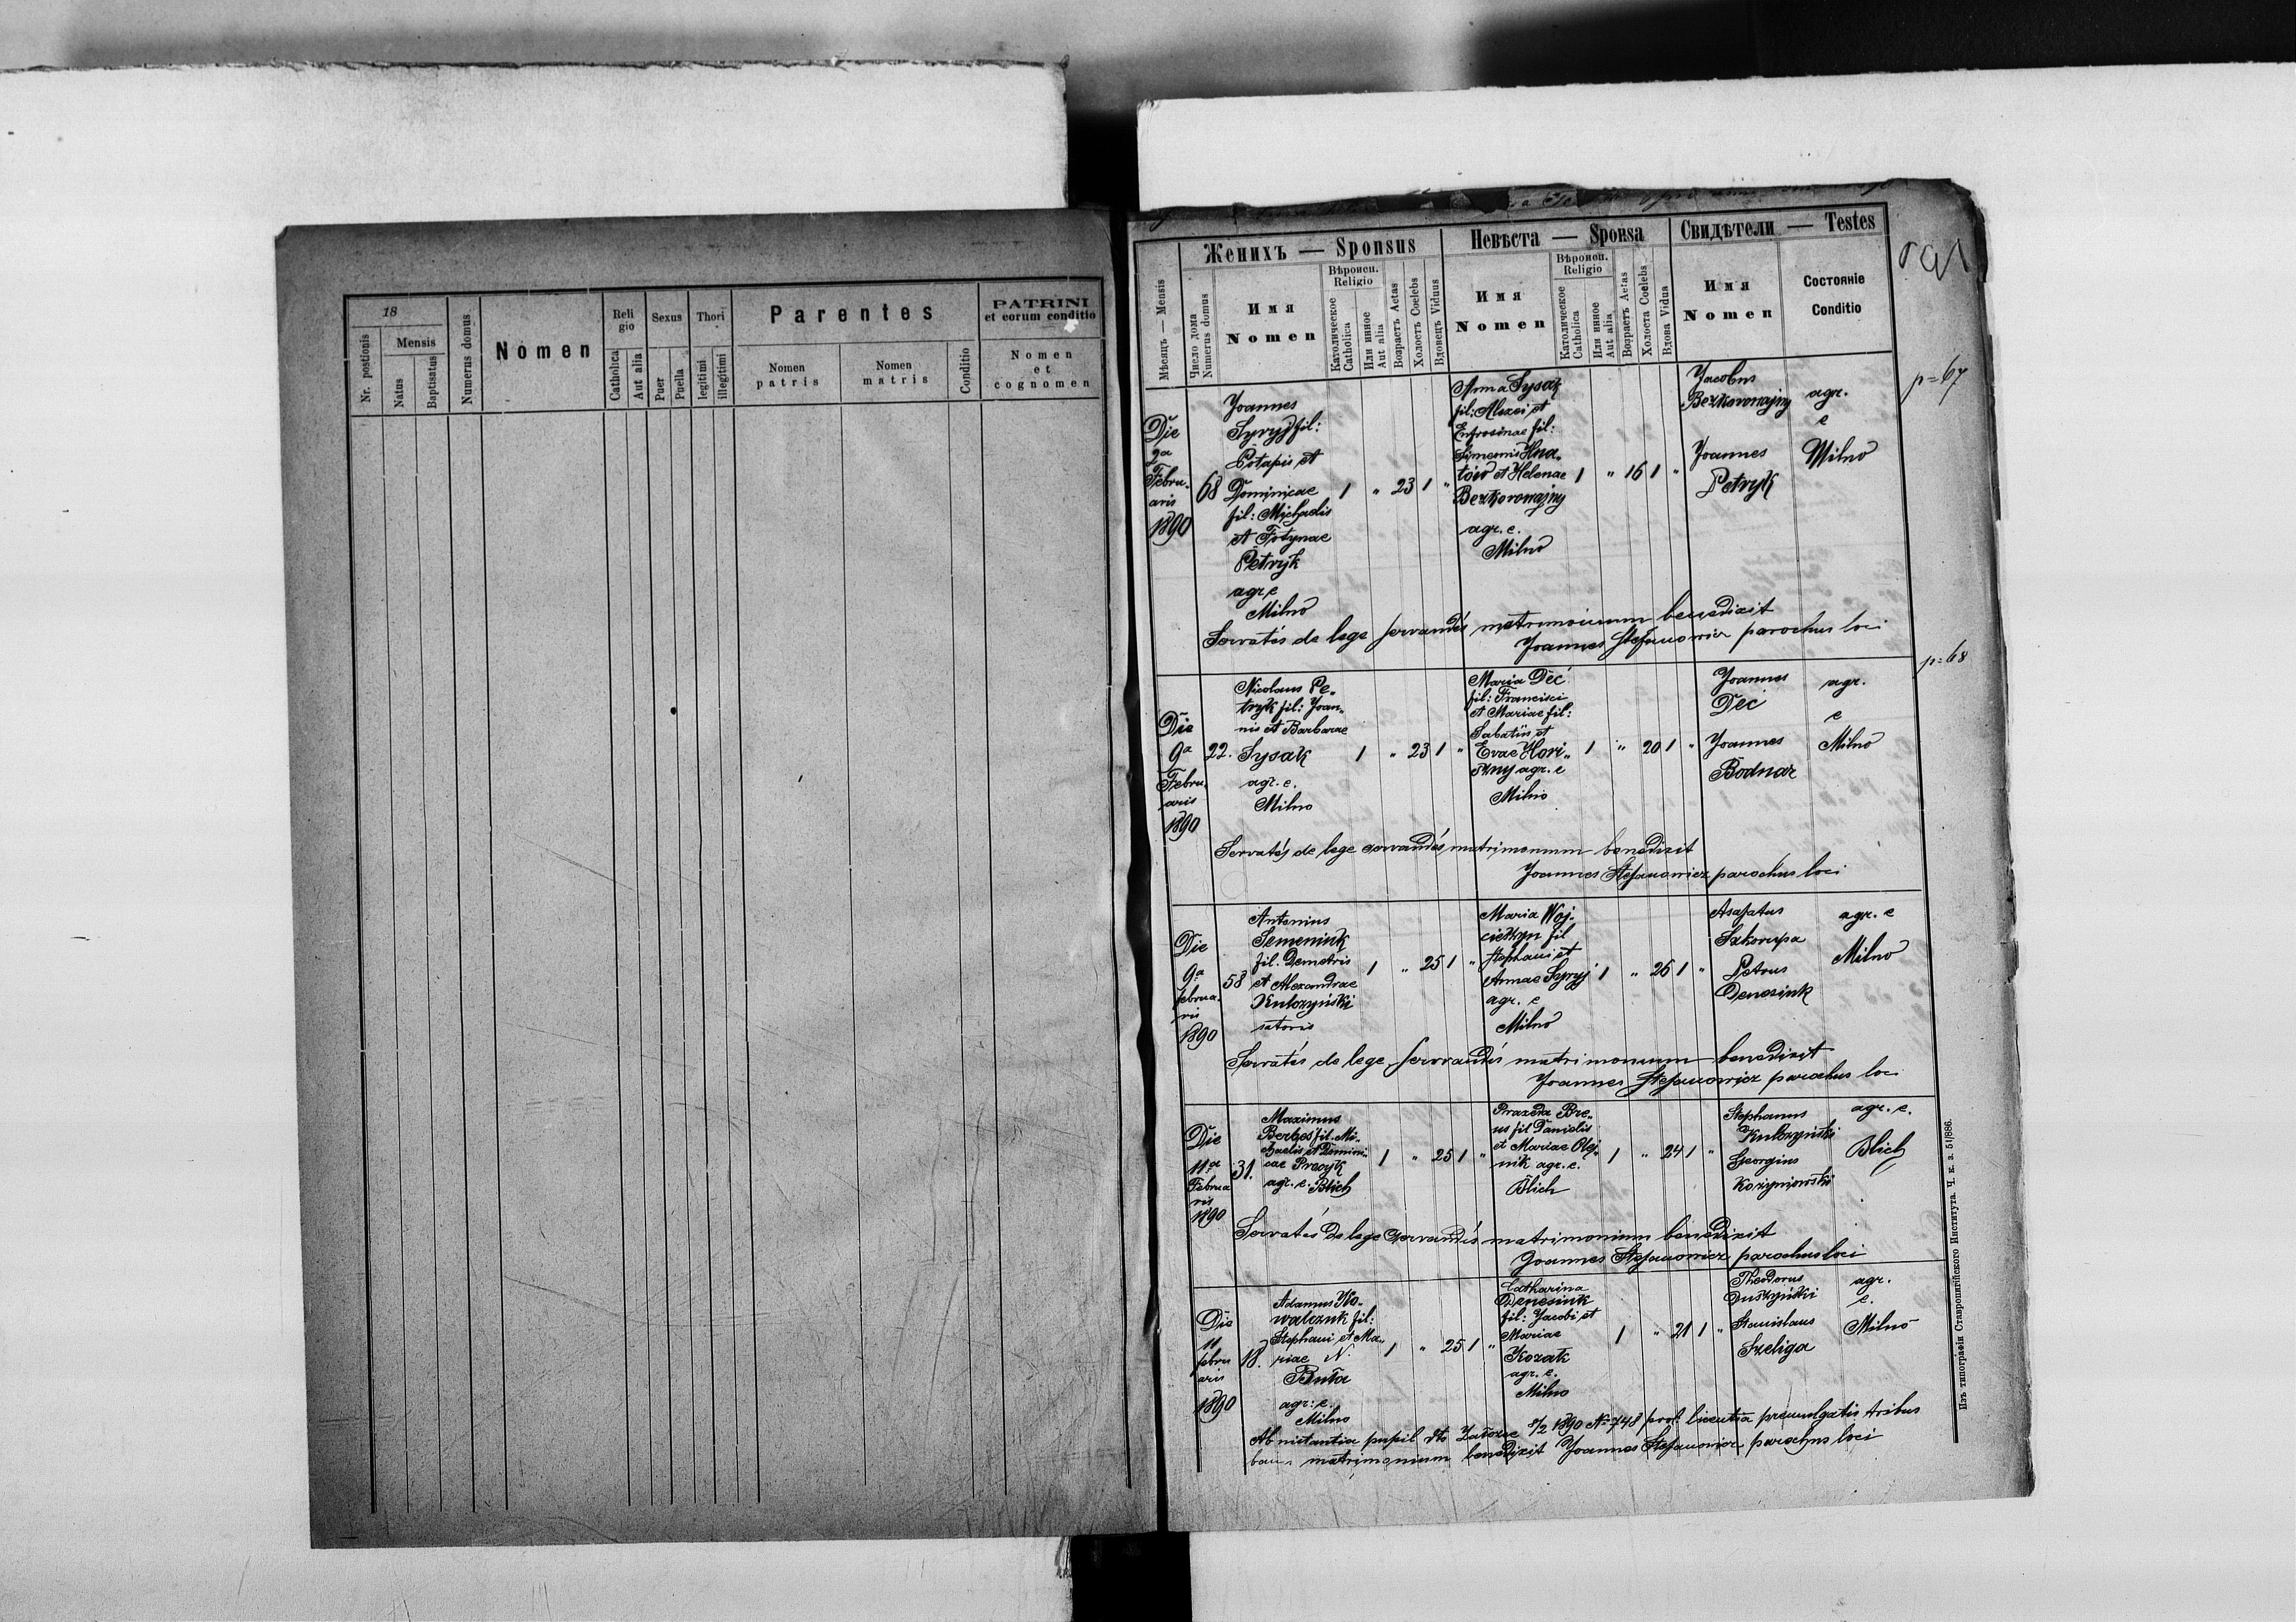 18
Nr. postionis
Mensis
Natus
Baptisatus
Numerus domus
Nomen
Reli
gio
Catholica
Aut alia
Sexus
Puer
Puella
Thori
legitimi
illegitimi
Parentes
Nomen
patris
Nomen
matris
Conditio
PATRINI
et eorum conditio
Nomen
et
cognomen
Мѣсяцъ — Mensis
Женихъ — Sponsus
Число дома
Numerus domus
Имя
Nomen
Вѣроисп.
Religio
Католическое
Catholica
Или инное
Aut alia
Возрастъ Aetas
Холостъ Coelebs
Вдовецъ Viduus
Невѣста — Sponsa
Имя
Nomen
Вѣроисп.
Religio
Католическое
Catholica
Или инное
Aut alia
Возрастъ Aetas
Холоста Coelebs
Вдова Vidua
Свидѣтели — Testes
Имя
Nomen
Состояніе
Conditio
p=67
Die
2a
Febru-
aris
1890
68
Joannes
Syryj fil:
Potapis et
Dominicae
fil: Michaelis
et Fotynae
Petryk
agr. e
Milno
1 " 23 1 "
Anna Sysak
fil: Alexei et
Eufrosinae fil:
Simeonis Hna-
tów et Helenae
Bezkorowajny
agr. e.
Milno
1 " 16 1 "
Jacobus
Bezkorowajny
Joannes
Petryk
agr.
e
Milno
Servatis de lege servandis matrimonium benedixit
Joannes Stefanowicz parochus loci
p=68
Die
9a
Febru-
aris
1890
22.
Nicolaus Pe-
tryk fil: Joan-
nis et Barbarae
Sysak
agr. e.
Milno
1 " 23 1 "
Maria Deć
fil: Francisci
et Mariae fil:
Sabatiis et
Evae Hori-
szny agr. e
Milno
1 " 20 1 "
Joannes
Deć
Joannes
Bodnar
agr.
e
Milno
Servatis de lege servandis matrimonium benedixit
Joannes Stefanowicz parochus loci
Die
9a
februa-
ris
1890
58
Antonius
Semeniuk
fil. Demetris
et Alexandrae
Kulczyński
satoris
1 " 25 1 "
Maria Woj-
cieszyn fil
Stephani et
Annae Syryj
agr. e
Milno
1 " 26 1 "
Asafatus
Szkorupa
Petrus
Denesiuk
agr. e
Milno
Servatis de lege servandis matrimonium benedixit
Joannes Stefanowicz parochus loci
Die
11a
Februa
ris
1890
31.
Maximus
Berbeś fil. Mi-
chaelis et Domini-
cae
agr. e. Blich
1 " 25 1 "
Praxeda Bre-
us fil Danielis
et Mariae Olej-
nik agr. e.
Blich
1 " 24 1 "
Stephanus
Kulczyński
Georgius
Korzyniowski
agr. e.
Blich
Servatis de lege servandis matrimonium benedixit
Joannes Stefanowicz parochus loci
Die
11
febru
aris
1890
18.
Adamus Ko-
walczuk fil:
Stephani et Ma-
riae N.
Buła
agr: e.
Milno
1 " 25 1 "
Catharina
Denesiuk
fil: Jacobi et
Mariae
Kozak
agr. e.
Milno
1 " 21 1 "
Theodorus
Duszyński
Stanislaus
Szeliga
agr.
e.
Milno
Ab instantia pupil dto Załoźce 8/2 1890 No 748 licentia praemulgatis tribus
bann. matrimonium benedixit Joannes Stefanowicz parochus loci
Изъ типографіи Ставропигійского Института. Ч. к. з. 51/886.